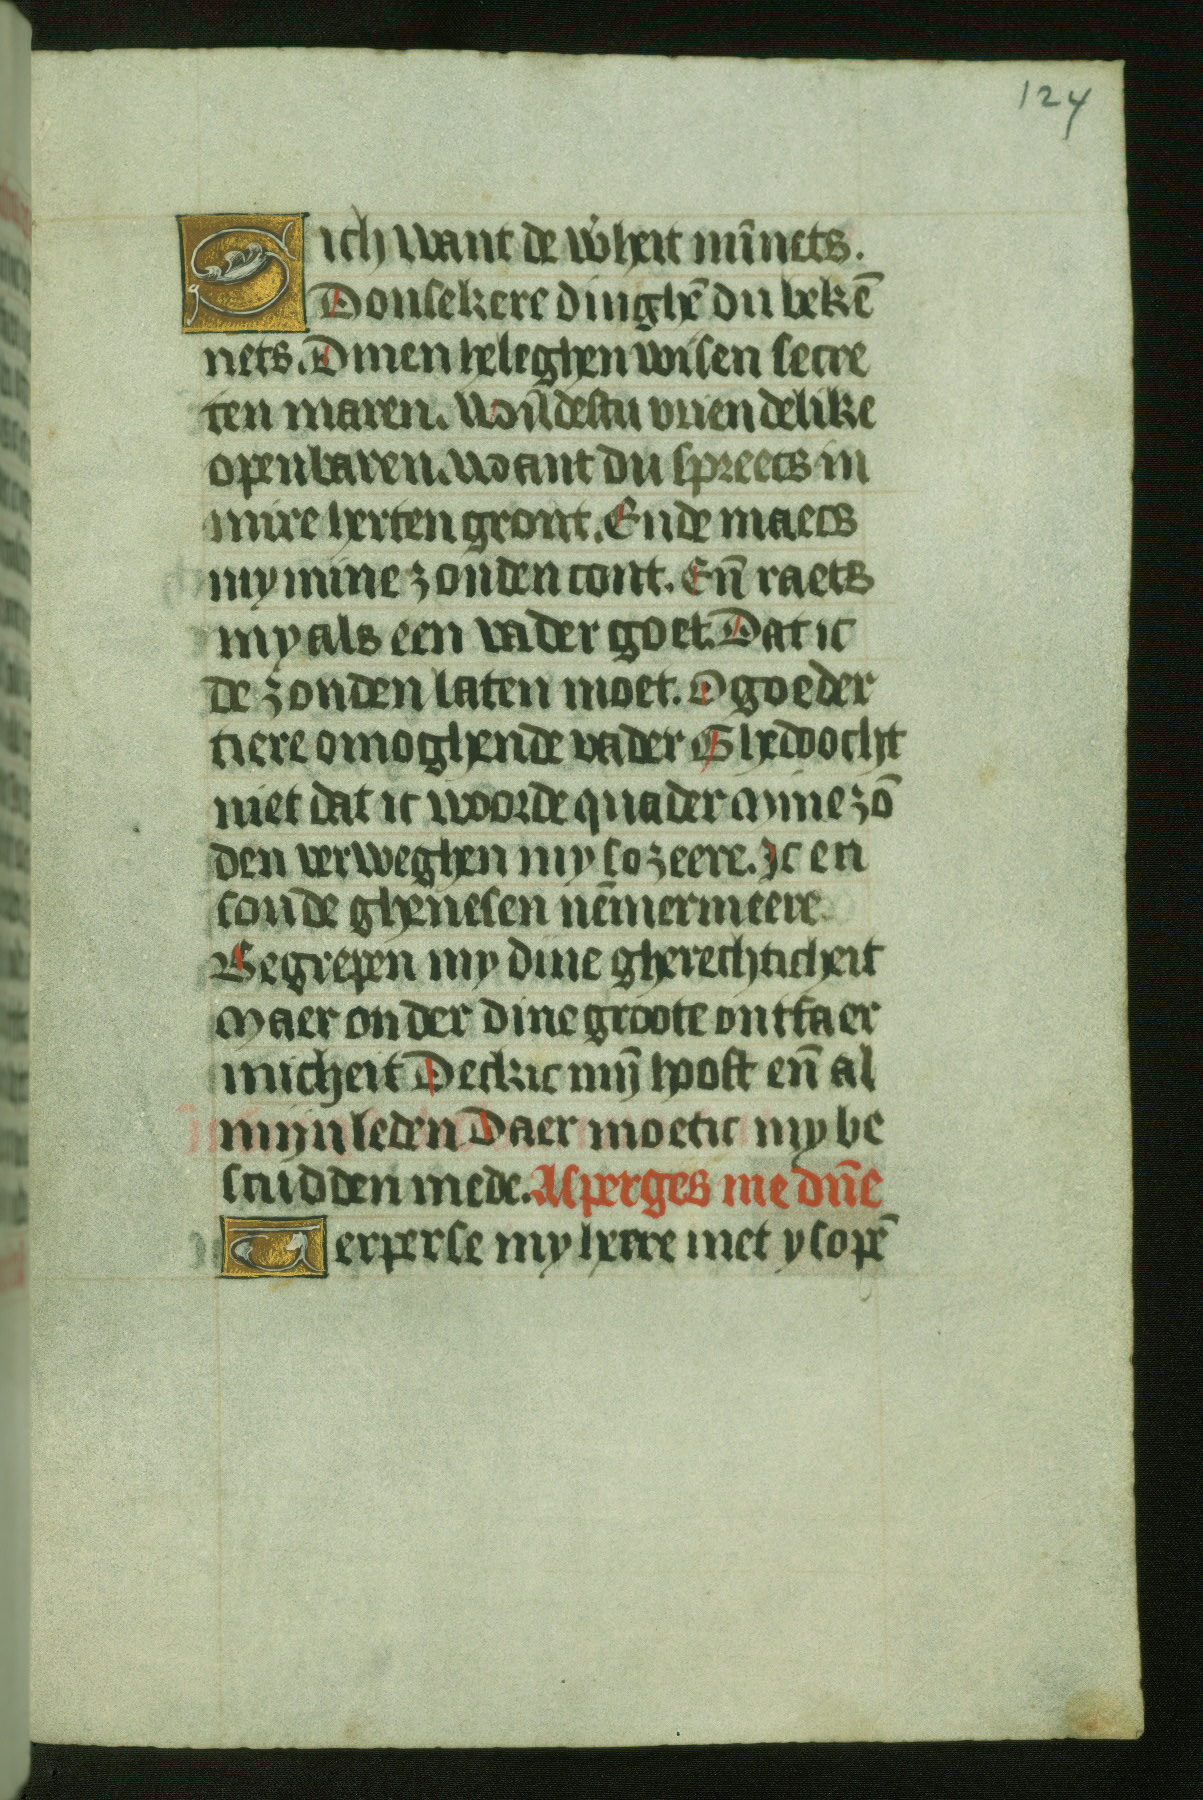 124
Sich want de wʼheit mīnets.
Donsekere dinghē du bekē
nets. Dinen heleghen wisen secre
ten maren. Woudestu vriendelike
openbaren. Want du spreects in
mire herten gront. Ende maects
my mine zonden cont. Eñ raets
my als een vader goet. Dat ic
de zonden laten moet. O goeder
tiere omoghende vader Ghedoocht
niet dat ic woorde quader Mine zō
den verweghen my so zeere. Ic en
soude ghenesen nēmermeere
Begrepen my dine gherechticheit
Maer onder dine groote ontfaer
micheit Deckic mȳ hooft eñ al
mijn leden Daer moetic my be
scudden mede. Asperges me dñe
Verperse my heere met ysopē